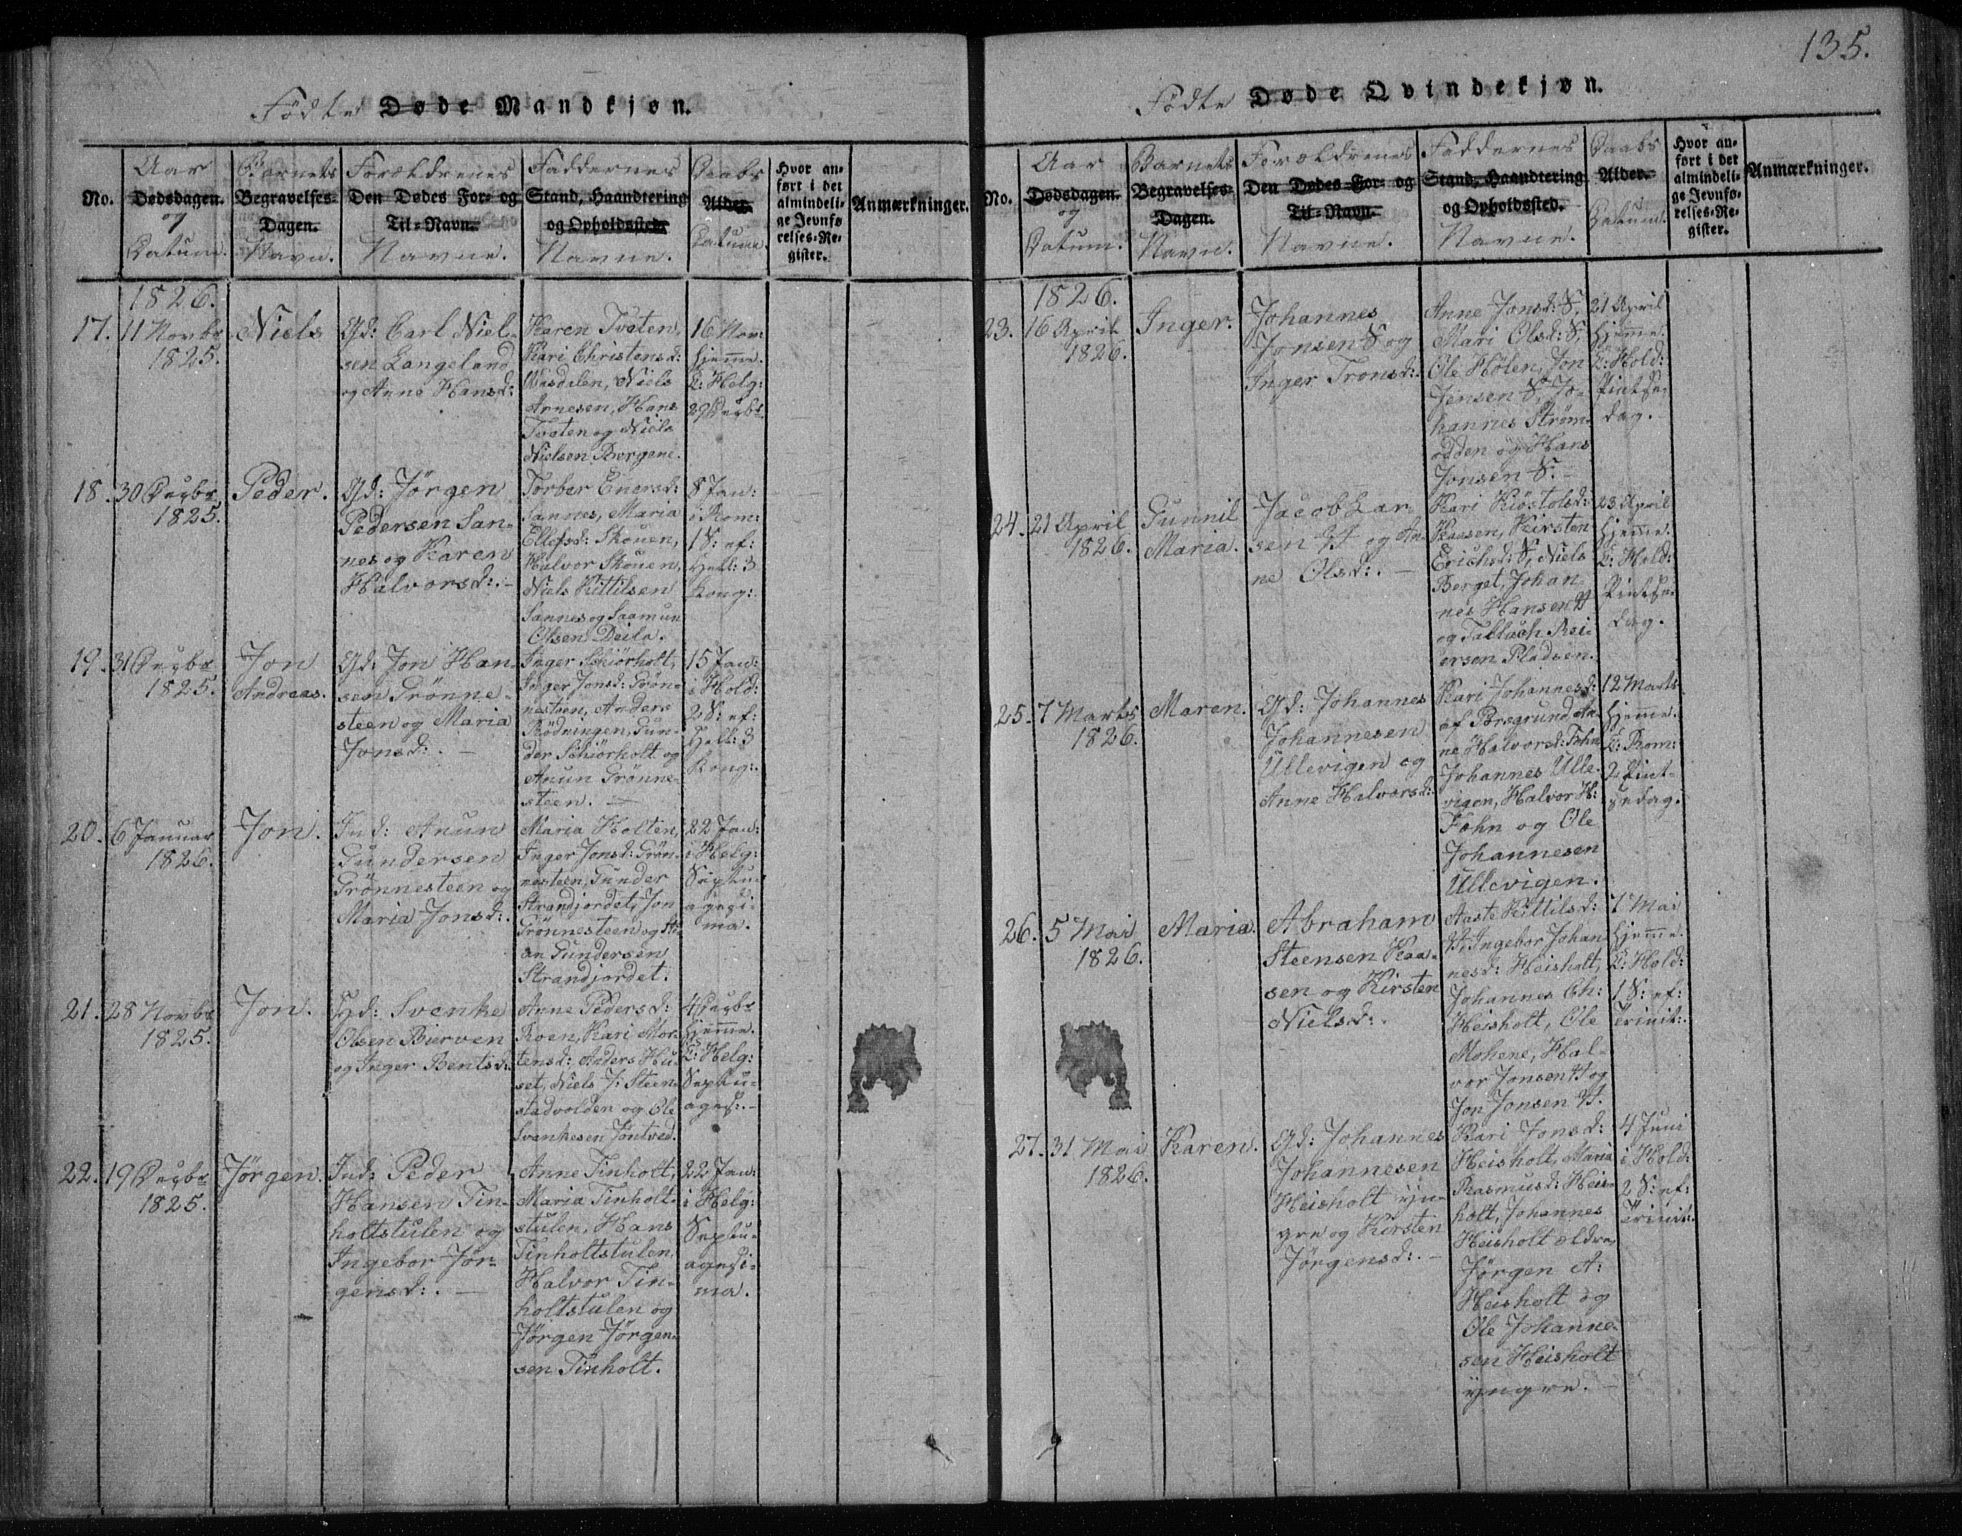 135.
Födte Døde Mandkjøn.
No.
Aar
Dødsdagen.
og
Datum.
Barnets
Begravelses-
Dagen.
Navn.
Forældrenes
Den Dødes For- og
Til-Navn.
Navne.
Faddernes
Stand, Haandtering
og Opholdssted.
Navne.
Daabs
Alder.
Datum.
Hvor an-
ført i det
almindeli-
ge Jevnfø-
relses-Re-
gister.
Anmærkninger.
1826.
17. 11 Novbr
1825.
Niels
Gd: Carl Niel-
sen Langeland
og Anne Hansd:
Karen Tveten,
Kari Christensd:
Niels
Arnesen, Hans
Tveten og Niels
Nielsen Bergene.
16 Nov:
hjemme.
D: Helg:
29 Decbr
18. 30 Decbr
1825.
Peder.
Gd: Jörgen
Pedersen San-
nes og Karen
Halvorsd:. -
Torber Enersd:
Sannes, Maria
Ellefsd: Skouen,
Halvor Skouen,
Niels Kittilsen
Sannes og Saamun
Olsen Deila.
8 Jan:
i Rom:
1 S: ef:
Hell: 3
Kong:
19. 31 Decbr
1825.
Jon
Andreas.
Gd: Jon Han-
sen Grönne-
steen og Maria
Jonsd:. -
Inger Schiörholt,
Inger Jonsd: Grön-
nesteen, Anders
Rödningen, Gun-
der Schiörholt og
Anun Grönne-
steen. -
15 Jan:
i Hold:
2 S: ef:
Hell: 3
Kong:.
20. 6 Januar
1826.
Jon.
Ind: Anun
Gundersen
Grönnesteen og
Maria Jonsd:.
Maria Holten,
Inger Jonsd: Grön-
nesteen, Gunder
Strandjordet, Jon
Grönnesteen og
Gundersen
Strandjordet.
22 Jan:
i Helg:
Septu-
agesi-
ma.
21. 28 Novbr
1825.
Jon.
Gd: Svenke
Olsen Bierven
og Inger Bentsd:
Anne Pedersd:
Roen, Kari Mor-
tensd: Anders Hu-
set, Niels J: Steen-
stadvolden og Ole
Svenkesen Jöntved.
4 Decbr
hjemme.
D: Helg:
Septu-
ages:. -
22. 19 Decbr
1825.
Jörgen.
Ind: Peder
Hansen Tin-
holtstulen og
Ingebor Jör-
gensd:. -
Anne Tinholt,
Maria Tinholt-
stulen, Hans
Tinholtstulen,
Halvor Tin-
holtstulen og
Jörgen Jörgen-
sen Tinholt.
22 Jan:
i Helg:
Septu-
agesi-
ma.
Födte Døde Qvindekjøn.
No.
Aar
Dødsdagen.
og
Datum.
Barnets
Begravelses-
Dagen.
Navn.
Forældrenes
Den Dødes For- og
Til-Navn.
Navne.
Faddernes
Stand, Haandtering
og Opholdssted.
Navne.
Daabs
Alder.
Datum.
Hvor an-
ført i det
almindeli-
ge Jevnfø-
relses-Re-
gister.
Anmærkninger.
1826.
23. 16 April
1826.
Inger.
Johannes
Jonsen S og
Inger Tronsd:.
Anne Jonsd: S,
Mari Olsd: S,
Ole Hölen, Jon
Jensen S, Jo-
hannes Ström-
odden og Hans
Jonsen S. -
21 April
hjemme.
D: Hold:
Pintse-
dag. -
24. 21 April
1826.
Gunnil
Maria.
Jacob Lar-
sen H og An-
ne Olsd:. -
Kari Kiöstolsd:
Kaasen, Kirsten
Erichsd: S, Niels
Berget, Johan-
nes Hansen H
og Tallach Rei-
ersen Pladsen.
23 April
hjemme.
D: Hold:
Pintse-
dag.
25. 7 Marts
1826.
Maren.
Gd: Johannes
Johannesen
Ullevigen og
Anne Halvorsd:
Kari Johannesd:
af Porsgrund An-
ne Halvorsd: Fohn
Johannes Ulle-
vigen, Halvor H:
Fohn og Ole
Johannesen
Ullevigen.
12 Marts
hjemme.
D: Rom:
2 Pint-
sedag.
26. 5 Mai
1826.
Maria.
Abraham
Steensen Kaa-
sen og Kirsten
Nielsd:.
Aaste Kittilsd:
H, Ingebor Johan-
nesd: Heisholt,
Johannes Ch:
Heisholt, Ole
Mohene, Hal-
vor Jonsen H og
Jon Jonsen H.
7 Mai
hjemme.
D: Hold:
1 S: ef:
Trinit:.
27. 31 Mai
1826.
Karen.
Gd: Johannes
Johannesen
Heisholt yn-
gre og Kirsten
Jörgensd:. -
Kari Jonsd:
Heisholt, Maria
Rasmusd: Heis-
holt, Johannes
Heisholt ældre,
Jörgen A:
Heisholt og
Ole Johanne-
sen Heisholt
yngre. -
4 Juni
i Hold:
2 S: ef:
Trinit:.